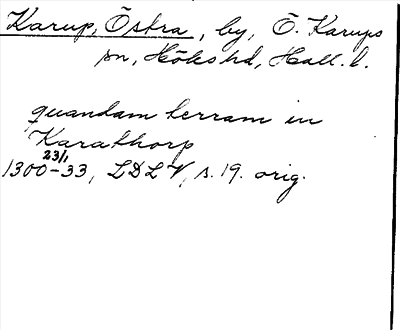 Karup, Östra, by, Ö. Karups
sn, Höks hd, Hall. l.
quandam terram in
Karathorp
23/1
1300-33, LDLV, s. 19. orig.